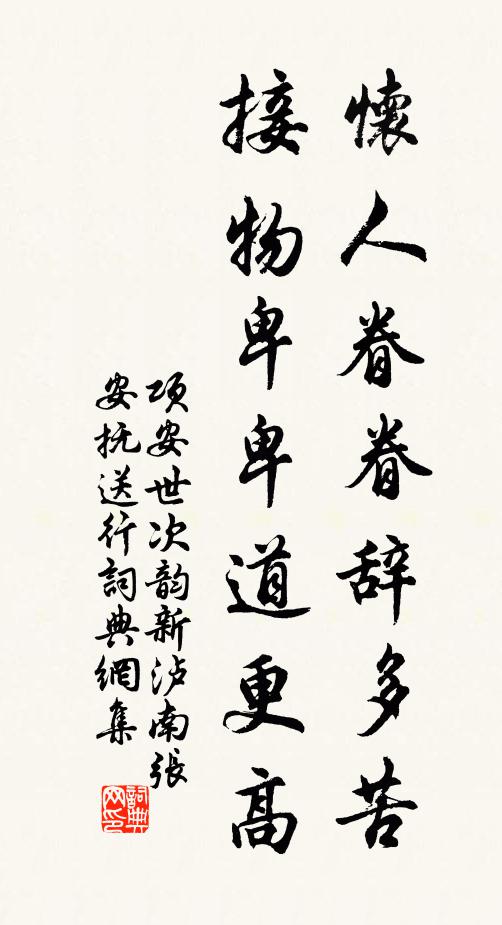 懷人眷眷辞多苦
接物卑卑道更高
项安世次韵新泸南張
安抚送行詞典網集
詞典
网印